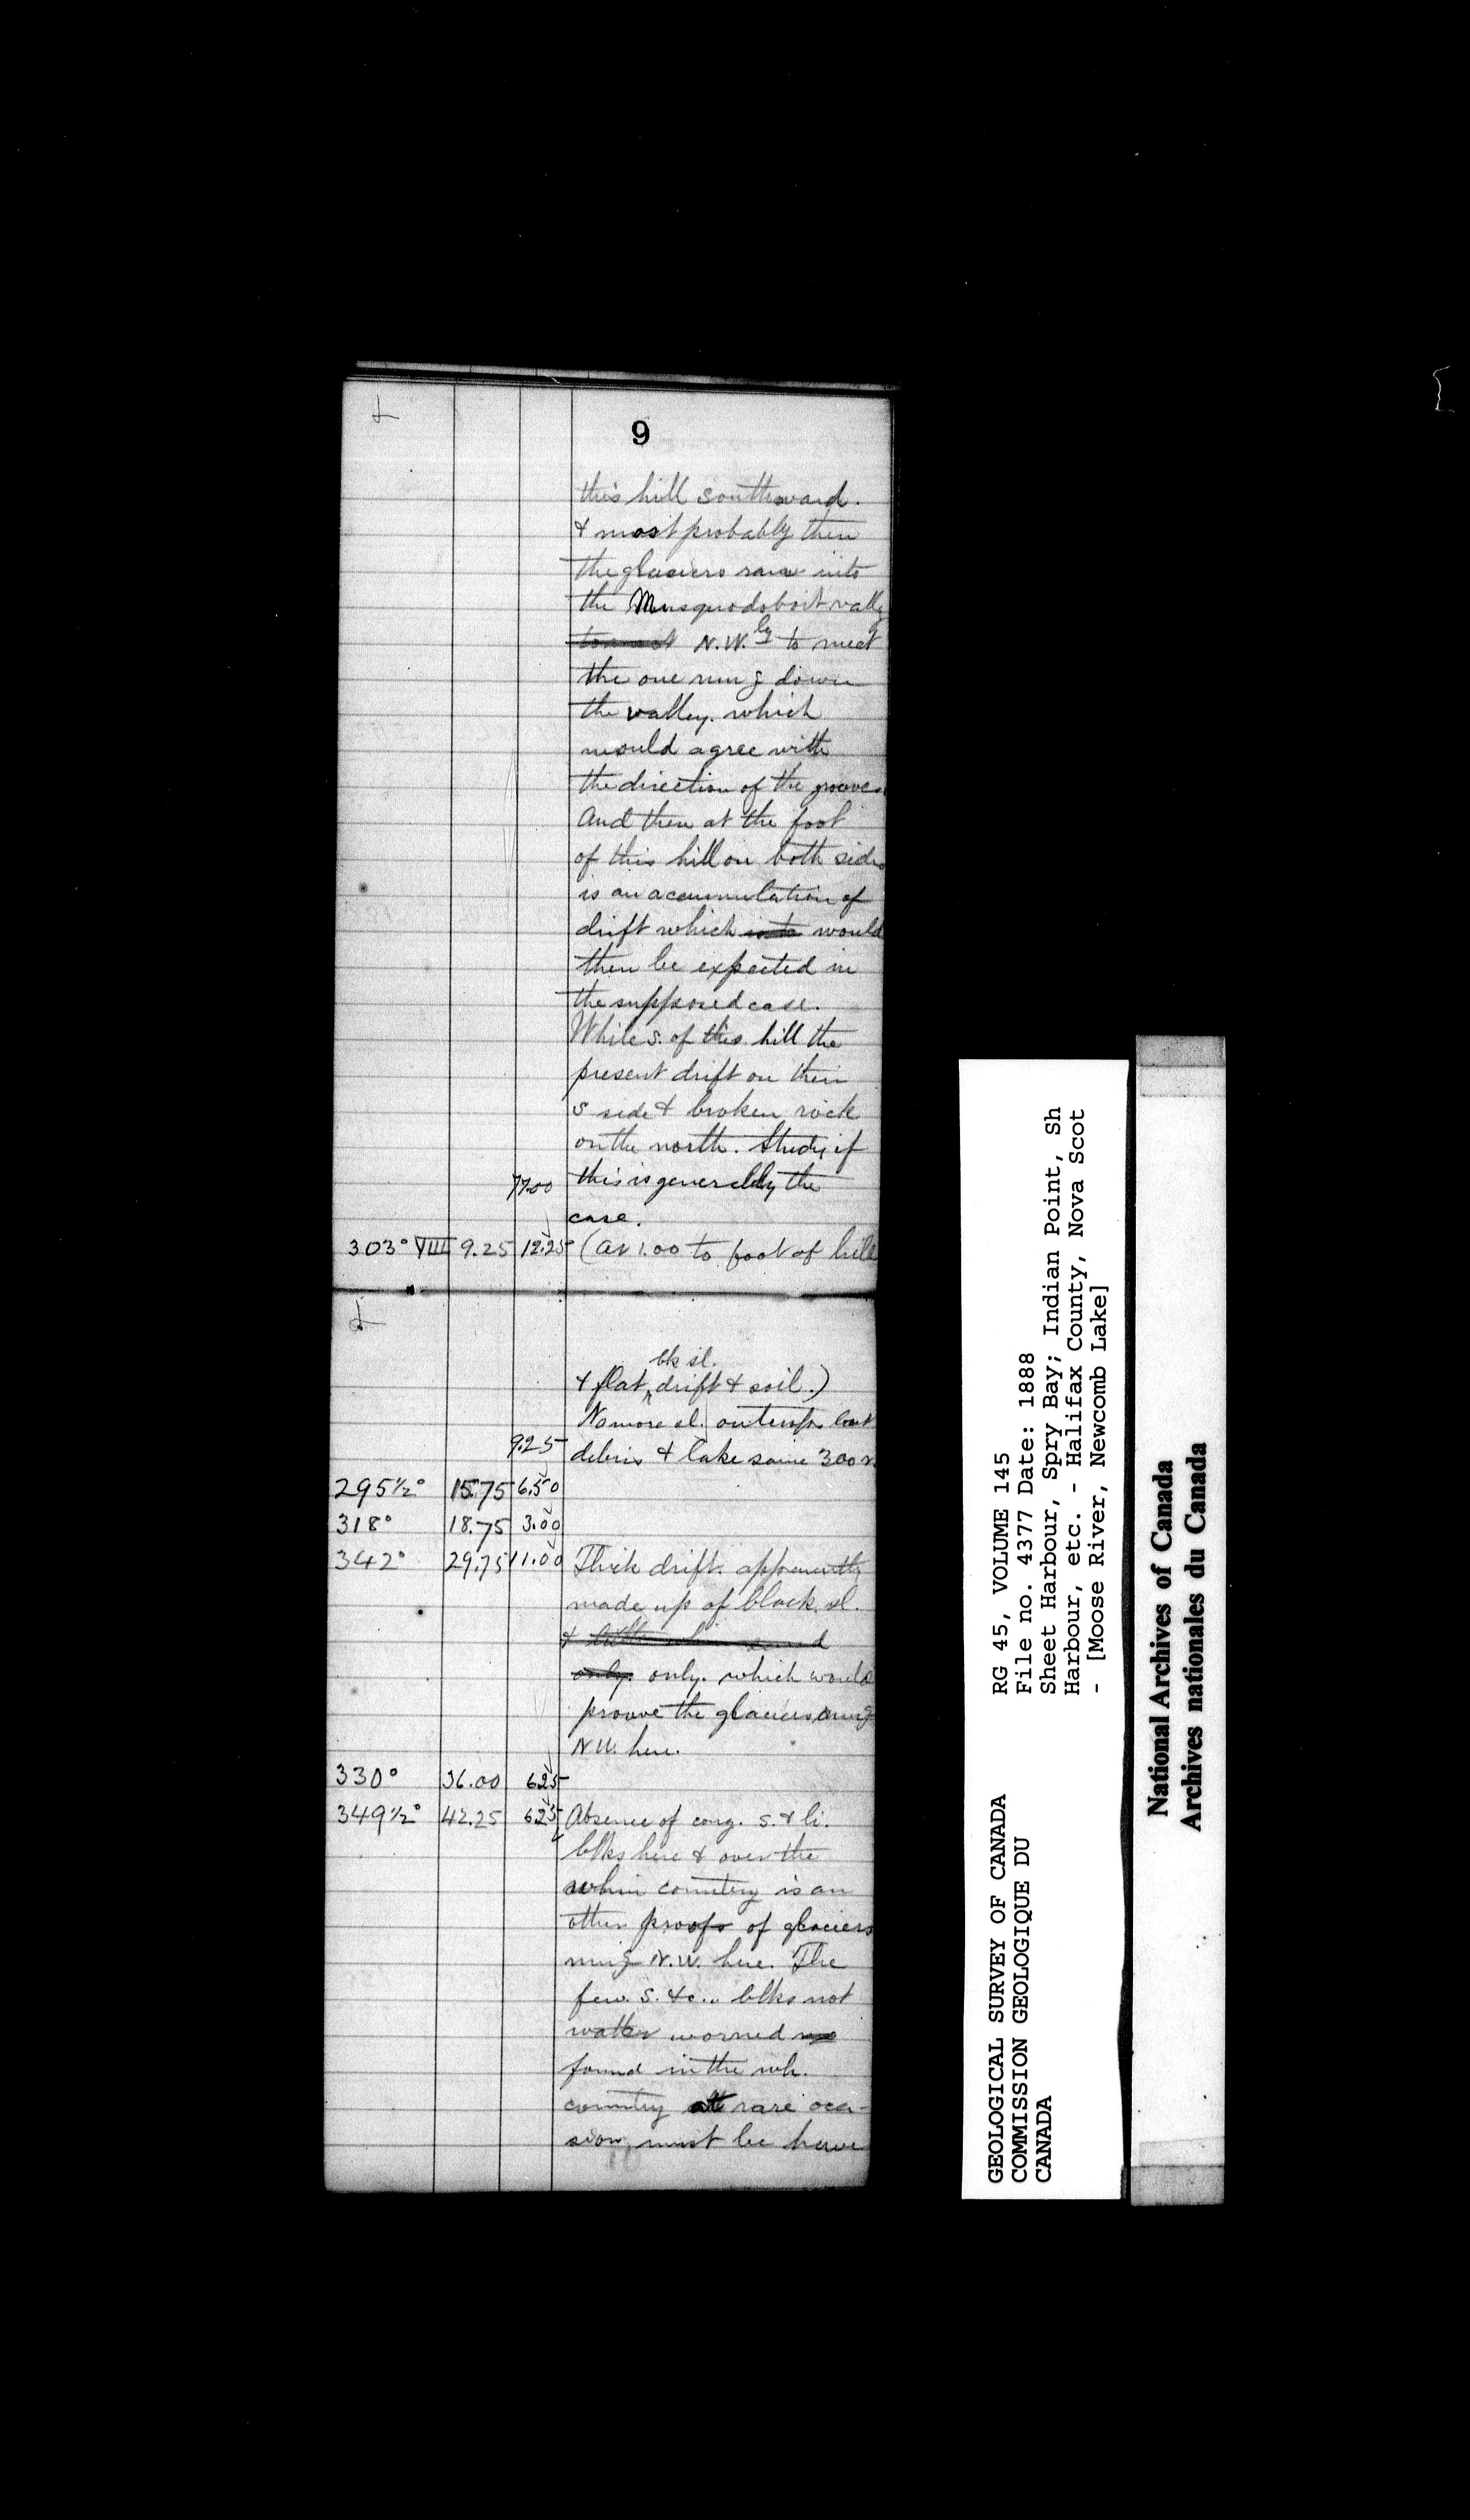 9
this hill southward.
& most probably then
the glaciers ran into
the Musquodoboit vally
N.W.ly to meet
the one rung down
the valley. which
would agree with
the direction of the grooves
And then at the foot
of this hill on both sides
is an accumulation of
drift which would
then be expected in
the supposed case.
While S. of this hill the
present drift on their
S side & broken rock
on the north. Study if
77.00 this is generally the
case.
303° VIII 9.25 12.25 (at 1.00 to foot of hill
bk sl.
& flat drift & soil.)
No more sl. outcrops but
9.25 debris & lake some 300
295½° 15.75 6.50
318° 18.75 3.00
342° 29.75 11.00 Thick drift. apparently
made up of black sl.
&
only. only. which would
proove the glaciers rung
N W. here.
330° 36.00 6.25
349½° 42.25 6.25 Absence of cong. S. & li.
blks here & over the
whin country is an
other proofs of glaciers
rung N.W. here. The
few. S. &c.. blks not
water worned
found in the wh.
country at rare occa-
sion, must be have
GEOLOGICAL SURVEY OF CANADA
COMMISSION GEOLOGIQUE DU
CANADA
RG 45, VOLUME 145
File no. 4377 Date: 1888
Sheet Harbour, Spry Bay; Indian Point, Sh
Harbour, etc. - Halifax County, Nova Scot
- [Moose River, Newcomb Lake]
National Archives of Canada
Archives nationales du Canada